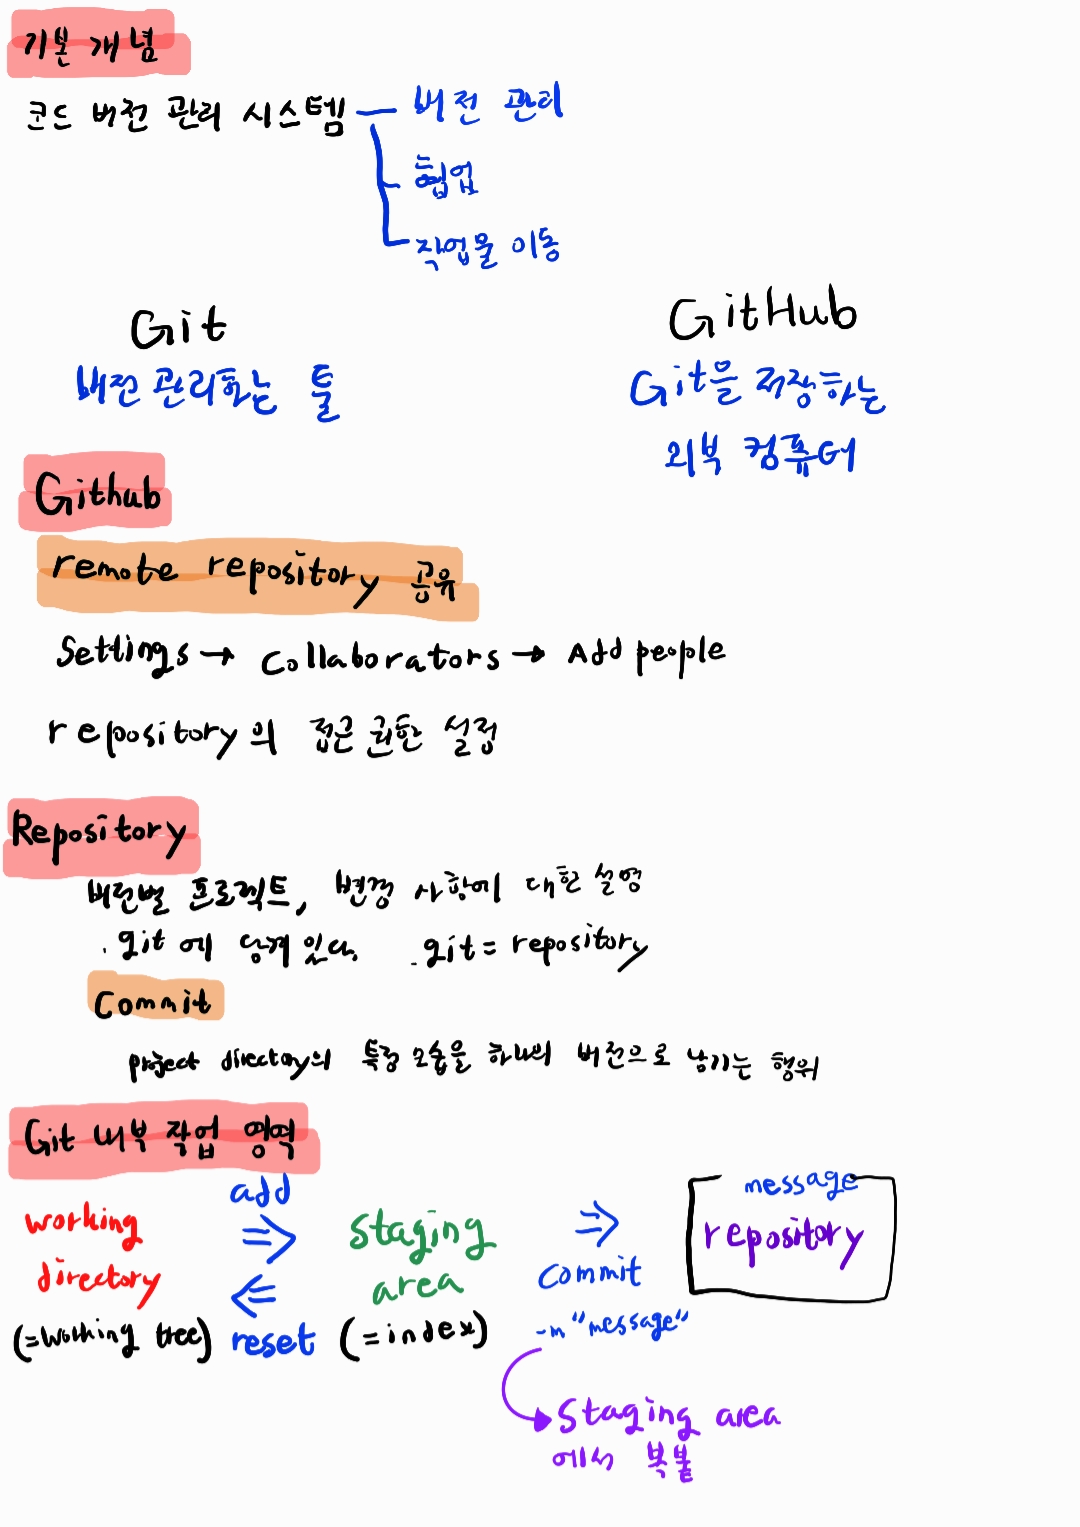 기본 개념
코드 버전 관리 시스템
버전 관리
협업
작업물 이동
Git
버전 관리하는 툴
GitHub
Git을 저장하는
외부 컴퓨터
Github
remote repository 공유
Settings → Collaborators → Add people
repository의 접근 권한 설정
Repository
버전별 프로젝트, 변경 사항에 대한 설명
.git에 담겨 있다. .git = repository
Commit
project directory의 특정 모습을 하나의 버전으로 남기는 행위
Git 내부 작업 영역
working
directory
(=working tree)
add
⇒
⇐
reset
staging
area
(=index)
⇒
commit
-m "message"
message
repository
staging area
에서 복붙